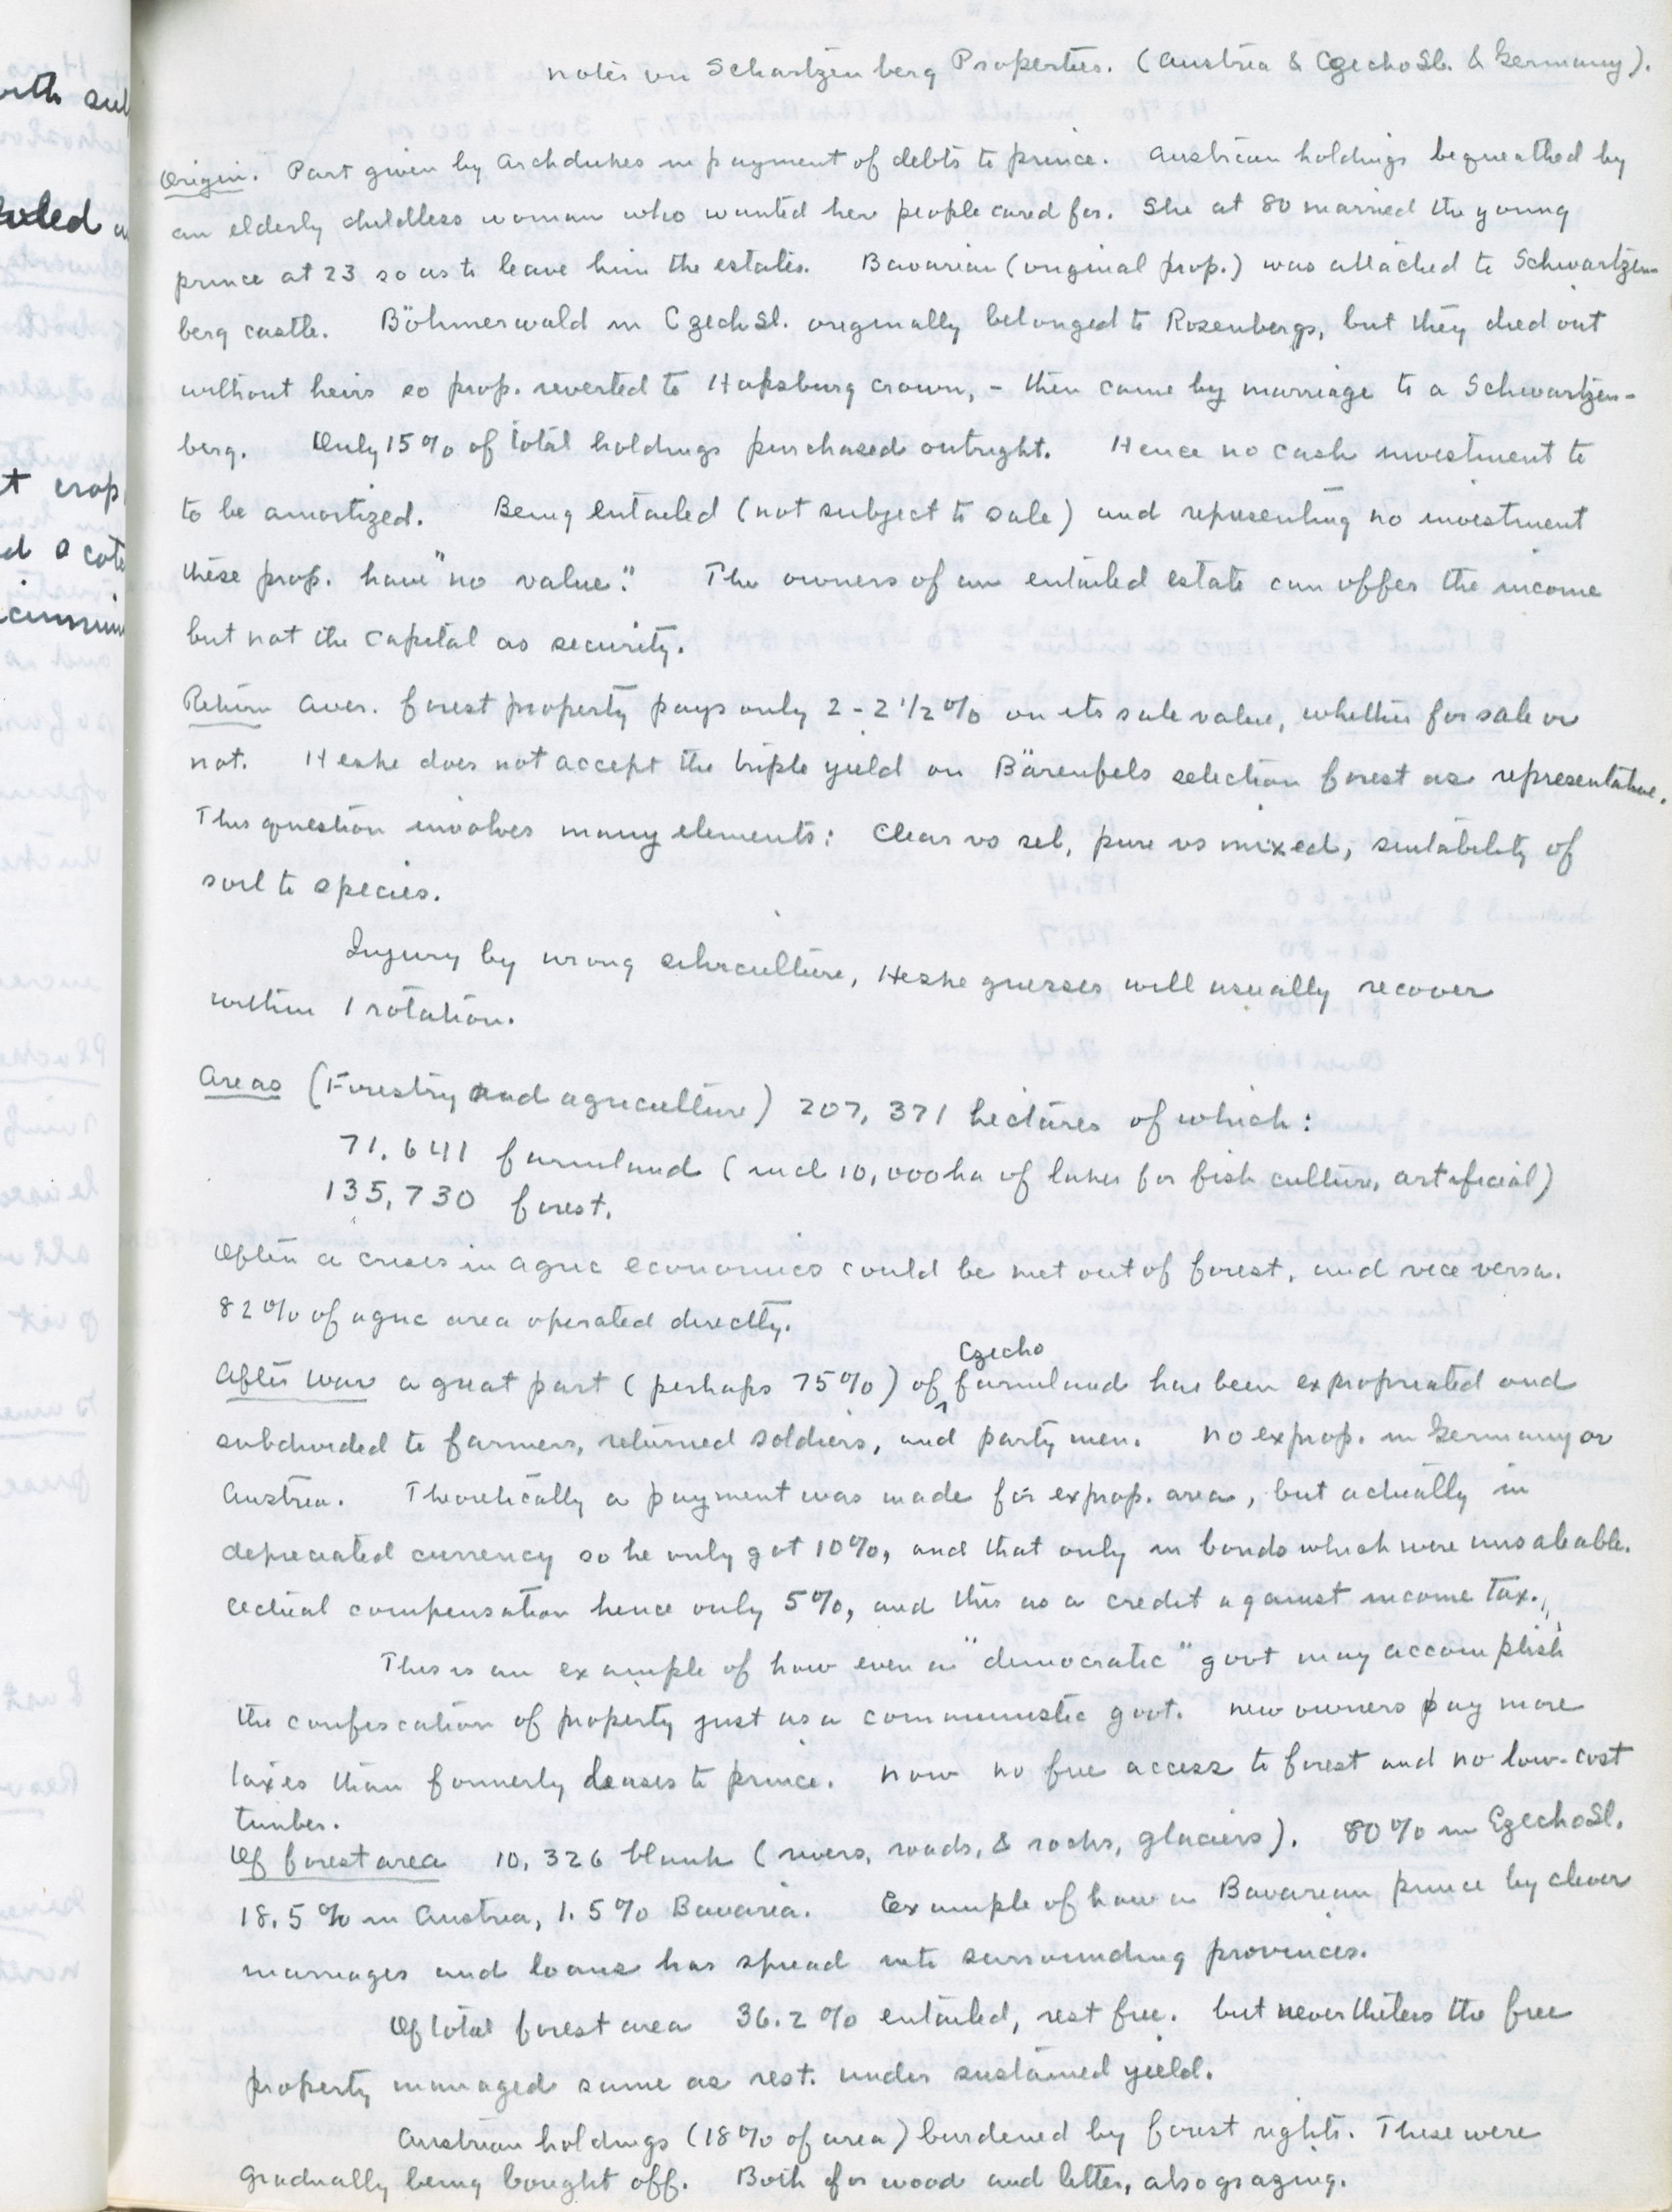 Notes on Schartzenberg Properties. (Austria & CzechoSl. & Germany).
Origin. Part given by Archdukes in payment of debts to prince. Austrian holdings bequeathed by
an elderly childless woman who wanted her people cared for. She at 80 married the young
prince at 23 so as to leave him the estates. Bavarian (original prop.) was attached to Schwartzen-
berg castle. Böhmerwald in CzechSl. originally belonged to Rosenbergs, but they died out
without heirs so prop. reverted to Hapsburg crown, - then came by marriage to a Schwartzen-
berg. Only 15% of total holdings purchased outright. Hence no cash investment to
to be amortized. Being entailed (not subject to sale) and representing no investment
these prop. have "no value." The owners of an entailed estate can offer the income
but not the capital as security.
Return Aver. forest property pays only 2 - 2 1/2% on its sale value, whether for sale or
not. Heske does not accept the triple yield on Bärenfels selection forest as representative.
This question involves many elements: Clear vs sel, pure vs mixed, suitability of
soil to species.
Injury by wrong silviculture, Heske guesses will usually recover
within 1 rotation.
Areas (Forestry and agriculture) 207,371 hectares of which:
71,641 farmland (incl 10,000 ha of lakes for fish culture, artificial)
135,730 forest.
Often a crises in agric economics could be met out of forest, and vice versa.
82% of agric area operated directly.
Czecho
After War a great part (perhaps 75%) of ^ farmland has been expropriated and
subdivided to farmers, returned soldiers, and party men. No exprop. in Germany or
Austria. Theoretically a payment was made for exprop. area, but actually in
depreciated currency so he only got 10%, and that only in bonds which were unsaleable.
Actual compensation hence only 5%, and this as a credit against income tax.
This is an example of how even a "democratic" govt may accomplish
the confiscation of property just as a communistic govt. New owners pay more
taxes than formerly leases to prince. Now no free access to forest and no low-cost
timber.
Of forest area 10,326 blank (rivers, roads, & rocks, glaciers). 80% in CzechoSl.
18.5% in Austria, 1.5% Bavaria. Example of how a Bavarian prince by clever
marriages and loans has spread into surrounding provinces.
Of total forest area 36.2% entailed, rest free. but nevertheless the free
property managed same as rest. under sustained yield.
Austrian holdings (18% of area) burdened by forest rights. These were
gradually being bought off. Both for wood and litter, also grazing.